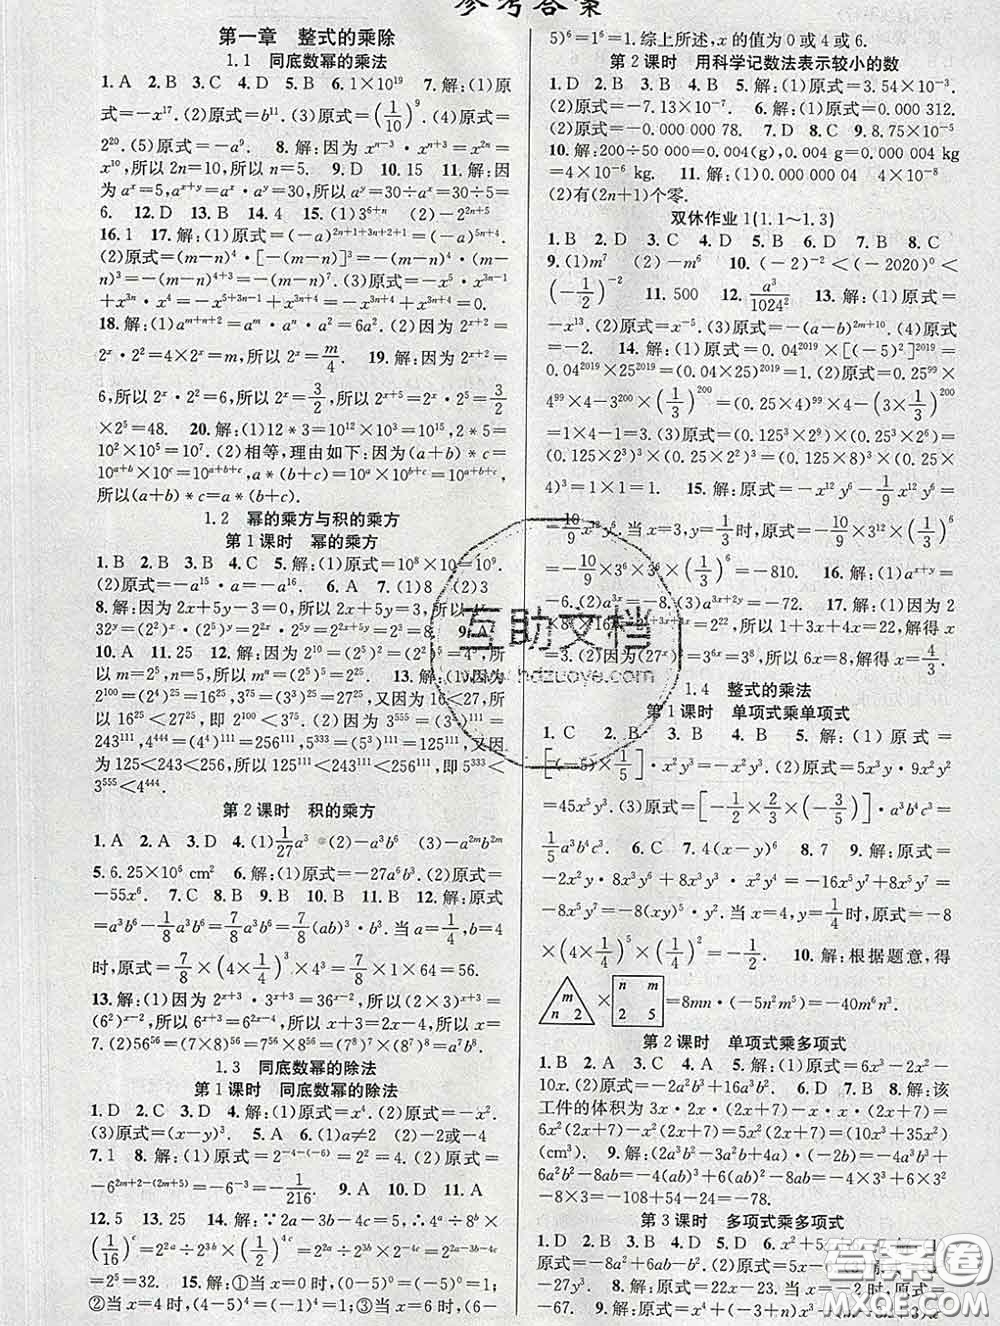 参考答案
第一章 整式的乘除
1.1 同底数幂的乘法
1. A 2. B 3. A 4. C 5. B 6. 1×10¹⁹ 7. 解:(1)原式
=−x¹⁷. (2)原式=b¹¹. (3)原式=(1/10)⁹. (4)原式=
2²⁰. (5)原式=−a⁹. 8. 解:因为 xⁿ⁻³·xⁿ⁺³=x²ⁿ=
x¹⁰,所以 2n=10,所以 n=5. 9. D 10. 15 11. 解:因
为 aˣ=5,aˣ⁺ʸ=aˣ·aʸ=30,所以 aʸ=30÷aˣ=30÷5=
6. 12. D 13. B 14. 4 15. (1)3⁶⁺ⁿ (2)−2ⁿ⁺⁵
16. 1 17. 解:(1)原式=(−a)²ⁿ⁺¹⁺³ⁿ⁺²⁺¹=(−a)⁵ⁿ⁺⁴.
(2)原式=(m−n)⁴·[−(m−n)]³=−(m−n)⁴·(m−
n)³=−(m−n)⁴⁺³=−(m−n)⁷. (3)原式=−x⁵·x³ⁿ⁻¹
+x³ⁿ·x⁴=−x⁵⁺³ⁿ⁻¹+x³ⁿ⁺⁴=−x³ⁿ⁺⁴+x³ⁿ⁺⁴=0.
18. 解:(1)aᵐ⁺ⁿ⁺²=aᵐ·aⁿ·a²=6a². (2)因为 2ˣ⁺²=
2ˣ·2²=4×2ˣ=m,所以 2ˣ=m/4. 19. 解:因为 2ˣ⁺²=
6,所以 2ˣ·2²=6,所以 2ˣ=3/2,所以 2ˣ⁺⁵=2ˣ·2⁵=3/2
×2⁵=48. 20. 解:(1)12*3=10¹²×10³=10¹⁵,2*5=
10²×10⁵=10⁷. (2)相等,理由如下:因为(a+b)*c=
10ᵃ⁺ᵇ×10ᶜ=10ᵃ⁺ᵇ⁺ᶜ,a*(b+c)=10ᵃ×10ᵇ⁺ᶜ=10ᵃ⁺ᵇ⁺ᶜ,
所以(a+b)*c=a*(b+c).
1.2 幂的乘方与积的乘方
第1课时 幂的乘方
1. B 2. B 3. B 4. C 5. 解:(1)原式=10⁸×10=10⁹.
(2)原式=−a¹⁵·a=−a¹⁶. 6. A 7. (1)8 (2)3
8. 解:因为 2x+5y−3=0,所以 2x+5y=3,所以 4ˣ·
10. A 11. 25 12. 解:因为 2¹⁰=(2²)⁵=(2⁵)²=4⁵,所
以 m=5,n=4. 13. 解:(1)因为
2¹⁰⁰=(2⁴)²⁵=16²⁵,3⁷⁵=(3³)²⁵=27²⁵,又因为 16<27,所
以 16²⁵<27²⁵,即 2¹⁰⁰<3⁷⁵. (2)因为 3⁵⁵⁵=(3⁵)¹¹¹=
243¹¹¹,4⁴⁴⁴=(4⁴)¹¹¹=256¹¹¹,5³³³=(5³)¹¹¹=125¹¹¹,又因
为 125<243<256,所以 125¹¹¹<243¹¹¹<256¹¹¹,即 5³³³<
3⁵⁵⁵<4⁴⁴⁴.
第2课时 积的乘方
1. A 2. A 3. D 4. (1)1/27a³ (2)−a³b⁶ (3)−a²ᵐb²ᵐ
5. 6.25×10⁶ cm² 6. 解:(1)原式=−27a⁶b³. (2)原式=
−55x⁶. 7. C 8. B 9. B 10. B 11. B 12. 解:原式=
a³b⁶−1/8a³b⁶=7/8a³b⁶=7/8(ab)³·b³. 当 a=1/4,b=4
时,原式=7/8×(4×1/4)³×4³=7/8×1×64=56.
13. 解:(1)因为 2ˣ⁺³·3ˣ⁺³=36ˣ⁻²,所以(2×3)ˣ⁺³=
(6²)ˣ⁻²,所以 6ˣ⁺³=6²ˣ⁻⁴,所以 x+3=2x−4,所以 x=
7. (2)56⁵⁶=(7×8)⁵⁶=7⁵⁶×8⁵⁶=(7⁸)⁷(8⁷)⁸=a⁷b⁸.
1.3 同底数幂的除法
第1课时 同底数幂的除法
1. D 2. A 3. D 4. 解:(1)原式=x⁴. (2)原式=−x².
(3)原式=(x−y)³. 5. A 6. (1)a≠2 (2)−2或−4
7. 1 8. 解:(1)原式=2⁻⁴⁻⁽⁻⁶⁾=2²=4. (2)原式=
−6²ᵐ⁺²⁻⁽²ᵐ⁺⁵⁾=−6⁻³=−1/216. 9. A 10. D 11. A
12. 5 13. 25 14. 解:∵2a−3b−4c=4,∴4ᵃ÷8ᵇ×
(1/16)ᶜ=2²ᵃ÷2³ᵇ×(1/2)⁴ᶜ=2²ᵃ÷2³ᵇ÷2⁴ᶜ=2²ᵃ⁻³ᵇ⁻⁴ᶜ=
2⁵=32. 15. 解:①当 x=0 时,(0−5)⁰=(−5)⁰=1;
②当 x=4 时,(4−5)⁴=(−1)⁴=1;③当 x=6 时,(6−
5)⁶=1⁶=1. 综上所述,x 的值为 0 或 4 或 6.
第2课时 用科学记数法表示较小的数
1. D 2. B 3. C 4. D 5. 解:(1)原式=3.54×10⁻³.
(2)原式=−7.13×10⁻⁷. 6. 解:(1)原式=0.000 312.
(2)原式=−0.000 000 78. 7. D 8. C 9. 8.75×10⁻⁵
10. 解:200÷50 000=0.004(g),0.004 g=0.000 004 kg
=4×10⁻⁶ kg. 11. 解:(1)0.000 000 04 4×10⁻⁸
(2)有(2n+1)个零.
双休作业1(1.1~1.3)
1. B 2. D 3. C 4. C 5. D 6. B 7. A 8. C
9. (1)m⁷ (2)−m⁶ 10. (−2)⁻²<(−2020)⁰<
(−1/2)⁻² 11. 500 12. a³/1024² 13. 解:(1)原式=
−x¹³. (2)原式=x⁻⁵. (3)原式=−(a−b)²ᵐ⁺¹⁰. (4)原式
=−2. 14. 解:(1)原式=0.04²⁰¹⁹×[(−5)²]²⁰¹⁹=
0.04²⁰¹⁹×25²⁰¹⁹=(0.04×25)²⁰¹⁹=1. (2)原式=0.25⁹⁹×
4⁹⁹×4−3²⁰⁰×(1/3)²⁰⁰=(0.25×4)⁹⁹×4−(3×1/3)²⁰⁰
=1×4−1=3. (3)原式=(0.125³×2⁹)×(0.25³×2⁶)=
(0.125³×2³×³)×(0.25³×2²×³)=(0.125×8)³×(0.25
×4)³=1×1=1. 15. 解:原式=−x¹²y⁶−1/9x¹²y⁶
=−10/9x¹²y⁶. 当 x=3,y=1/3时,原式=−10/9×3¹²×(1/3)⁶
=−10/9×3⁶×3⁶×(1/3)⁶=−810. 16. 解:(1)aˣ⁺ʸ=
−6. (2)a³ˣ=−8. (3)a³ˣ⁺²ʸ=−72. 17. 解:(1)因为 2
=3. (2)因为(27ˣ)²=3⁶ˣ=3⁸,所以 6x=8,解得 x=4/3.
1.4 整式的乘法
第1课时 单项式乘单项式
1. C 2. B 3. C 4. B 5. 解:(1)原式=
[(−5)×1/5]·x²y³. (2)原式=5x³y·9x²y²
=45x⁵y³. (3)原式=[−1/2×2/3×(−3/5)]·a³b⁴c³=
1/5a³b⁴c³. 6. C 7. 4(x−y)⁶ 8. 7 9. 解:原式=
−2x²y·8x³y⁶+8x⁵y⁷=−16x⁵y⁷+8x⁵y⁷=
−8x⁵y⁷=−8(xy)⁵·y². 当 x=4,y=1/4时,原式=−8
×(4×1/4)⁵×(1/4)²=−1/2. 10. 解:根据题意,得
m n 2 × n m 2 5 =8mn·(−5n²m⁵)=−40m⁶n³.
第2课时 单项式乘多项式
1. B 2. A 3. C 4. A 5. 解:(1)原式=6x³−2x²−
10x. (2)原式=−2a²b²+16a³b². 6. D 7. B 8. 解:该
工件的体积为 3x·2x·(2x+7)−x·x·(2x+7)=
6x²(2x+7)−x²(2x+7)=5x²(2x+7)=(10x³+35x²)
(cm³). 9. 解:(2a³b²−3a²b+4a)·(−2b)=−4a³b³+
6a²b²−8ab=−4(ab)³+6(ab)²−8ab=−4×3³+6×3²
−8×3=−108+54−24=−78.
第3课时 多项式乘多项式
−67. 9. 解:原式=x⁴+(−3+n)x³
互助文档
www.hdzuoye.com
答案圈
MXQE.COM